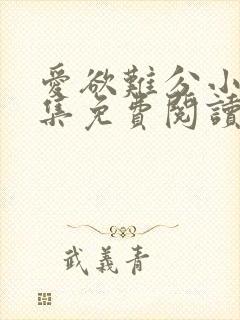 愛欲難分小
集免費閱讀
武義青